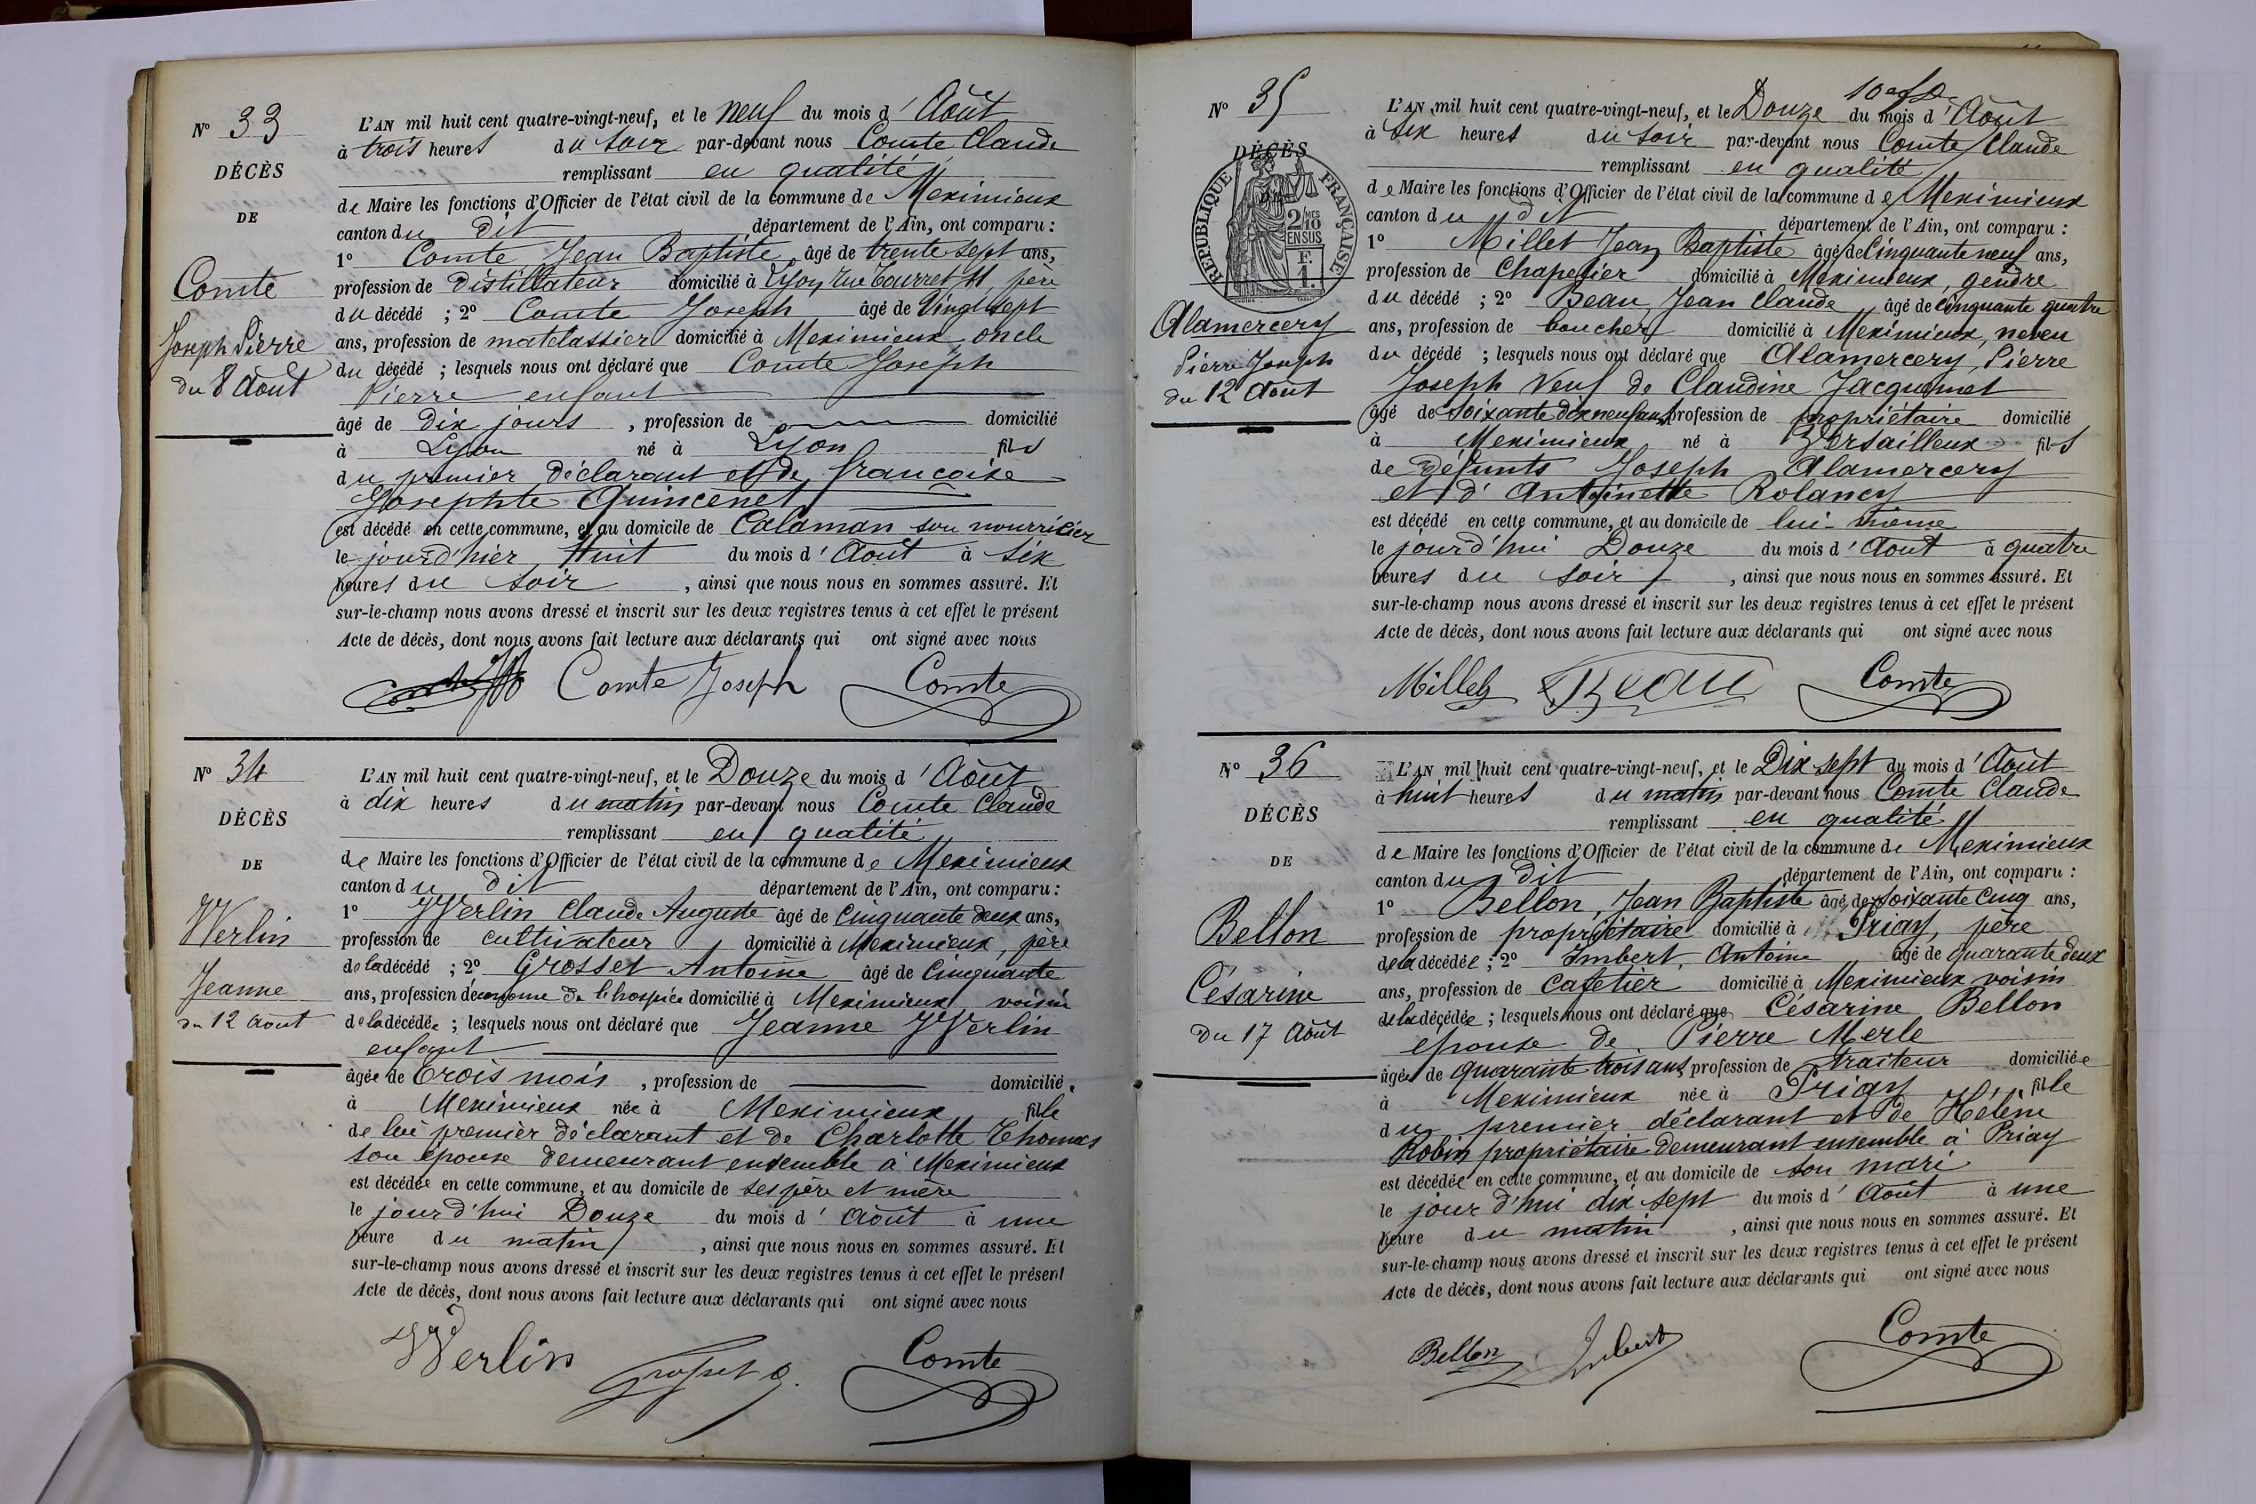 N° 33
DÉCÈS
DE
Comte
Joseph Pierre
du 8 Août
L'AN mil huit cent quatre-vingt-neuf, et le neuf du mois d'Août
à trois heures du soir par-devant nous Comte Claude
remplissant en qualité
de Maire les fonctions d'Officier de l'état civil de la commune de Meximieux
canton du dit département de l'Ain, ont comparu :
1° Comte Jean Baptiste âgé de trente sept ans,
profession de distillateur domicilié à Lyon, rue Tourret 11, père
du décédé ; 2° Comte Joseph âgé de vingt sept
ans, profession de matelassier domicilié à Meximieux oncle
du décédé ; lesquels nous ont déclaré que Comte Joseph
Pierre enfant
âgé de dix jours , profession de domicilié
à Lyon né à Lyon fils
du premier déclarant et de françoise
Josephte Quincenet
est décédé en cette commune, et au domicile de Calaman son nourricier
le jourd'hier huit du mois d'Août à six
heures du soir , ainsi que nous nous en sommes assuré. Et
sur-le-champ nous avons dressé et inscrit sur les deux registres tenus à cet effet le présent
Acte de décès, dont nous avons fait lecture aux déclarants qui ont signé avec nous
Comte Joseph Comte
N° 34
DÉCÈS
DE
Werlin
Jeanne
du 12 Août
L'AN mil huit cent quatre-vingt-neuf, et le Douze du mois d'Août
à dix heures du matin par-devant nous Comte Claude
remplissant en qualité
de Maire les fonctions d'Officier de l'état civil de la commune de Meximieux
canton du dit département de l'Ain, ont comparu :
1° Werlin Claude Auguste âgé de Cinquante deux ans,
profession de cultivateur domicilié à Meximieux, père
de la décédé ; 2° Grosset Antoine âgé de Cinquante
ans, profession d'économe de l'hospice domicilié à Meximieux voisin
de la décédée ; lesquels nous ont déclaré que Jeanne Werlin
enfant
âgée de trois mois , profession de domicilié
à Meximieux née à Meximieux fille
de lui premier déclarant et de Charlotte Thomas
son épouse demeurant ensemble à Meximieux
est décédée en cette commune, et au domicile de ses père et mère
le jourd'hui Douze du mois d'Août à une
heure du matin , ainsi que nous nous en sommes assuré. Et
sur-le-champ nous avons dressé et inscrit sur les deux registres tenus à cet effet le présent
Acte de décès, dont nous avons fait lecture aux déclarants qui ont signé avec nous
Werlin Grosset a. Comte
N° 35
DÉCÈS
DE
RÉPUBLIQUE FRANÇAISE
2/10 MES
EN SUS
1 F.
Alamercery
Pierre Joseph
du 12 Août
L'AN mil huit cent quatre-vingt-neuf, et le Douze du mois d'Août
à six heures du soir par-devant nous Comte Claude
remplissant en qualité
de Maire les fonctions d'Officier de l'état civil de la commune de Meximieux
canton du dit département de l'Ain, ont comparu :
1° Millet Jean Baptiste âgé de Cinquante neuf ans,
profession de Chapelier domicilié à Meximieux, gendre
du décédé ; 2° Beau Jean Claude âgé de cinquante quatre
ans, profession de boucher domicilié à Meximieux, neveu
du décédé ; lesquels nous ont déclaré que Alamercery, Pierre
Joseph veuf de Claudine Jacquemet
âgé de soixante dix neuf ans profession de propriétaire domicilié
à Meximieux né à Versailleux fils
de défunts Joseph Alamercery
et d'Antoinette Rolancy
est décédé en cette commune, et au domicile de lui-même
le jourd'hui Douze du mois d'Août à quatre
heures du soir , ainsi que nous nous en sommes assuré. Et
sur-le-champ nous avons dressé et inscrit sur les deux registres tenus à cet effet le présent
Acte de décès, dont nous avons fait lecture aux déclarants qui ont signé avec nous
Millet Beau Comte
N° 36
DÉCÈS
DE
Bellon
Césarine
Du 17 Août
L'AN mil huit cent quatre-vingt-neuf, et le Dix sept du mois d'Août
à huit heures du matin par-devant nous Comte Claude
remplissant en qualité
de Maire les fonctions d'Officier de l'état civil de la commune de Meximieux
canton du dit département de l'Ain, ont comparu :
1° Bellon, Jean Baptiste âgé de soixante cinq ans,
profession de propriétaire domicilié à Priay, père
de la décédée ; 2° Imbert, Antoine âgé de quarante deux
ans, profession de cafetier domicilié à Meximieux voisin
de la décédée ; lesquels nous ont déclaré que Césarine Bellon
épouse de Pierre Merle
âgée de quarante trois ans profession de traiteur domiciliée
à Meximieux née à Priay fille
du premier déclarant et de Hélène
Robin propriétaire demeurant ensemble à Priay
est décédée en cette commune, et au domicile de son mari
le jour d'hui dix sept du mois d'Août à une
heure du matin , ainsi que nous nous en sommes assuré. Et
sur-le-champ nous avons dressé et inscrit sur les deux registres tenus à cet effet le présent
Acte de décès, dont nous avons fait lecture aux déclarants qui ont signé avec nous
Bellon Imbert Comte